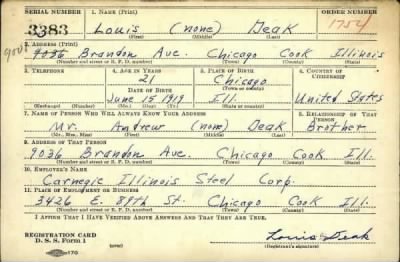 SERIAL NUMBER 1. NAME (Print) ORDER NUMBER
3383 Louis (none) Deak 1754
(First) (Middle) (Last)
2. ADDRESS (Print)
9036 Brandon Ave. Chicago Cook Illinois
(Number and street or R. F. D. number) (Town) (County) (State)
3. TELEPHONE 4. AGE IN YEARS 5. PLACE OF BIRTH 6. COUNTRY OF CITIZENSHIP
21 Chicago
(Town or county)
DATE OF BIRTH
June 15 1919 Ill. United States
(Exchange) (Number) (Mo.) (Day) (Yr.) (State or country)
7. NAME OF PERSON WHO WILL ALWAYS KNOW YOUR ADDRESS 8. RELATIONSHIP OF THAT PERSON
Mr. Andrew (none) Deak Brother
(Mr., Mrs., Miss) (First) (Middle) (Last)
9. ADDRESS OF THAT PERSON
9036 Brandon Ave. Chicago Cook Ill.
(Number and street or R. F. D. number) (Town) (County) (State)
10. EMPLOYER'S NAME
Carnegie Illinois Steel Corp.
11. PLACE OF EMPLOYMENT OR BUSINESS
3426 E. 89th St. Chicago Cook Ill.
(Number and street or R. F. D. number) (Town) (County) (State)
I AFFIRM THAT I HAVE VERIFIED ABOVE ANSWERS AND THAT THEY ARE TRUE.
REGISTRATION CARD
D. S. S. Form 1 Louis Deak
(Registrant's signature)